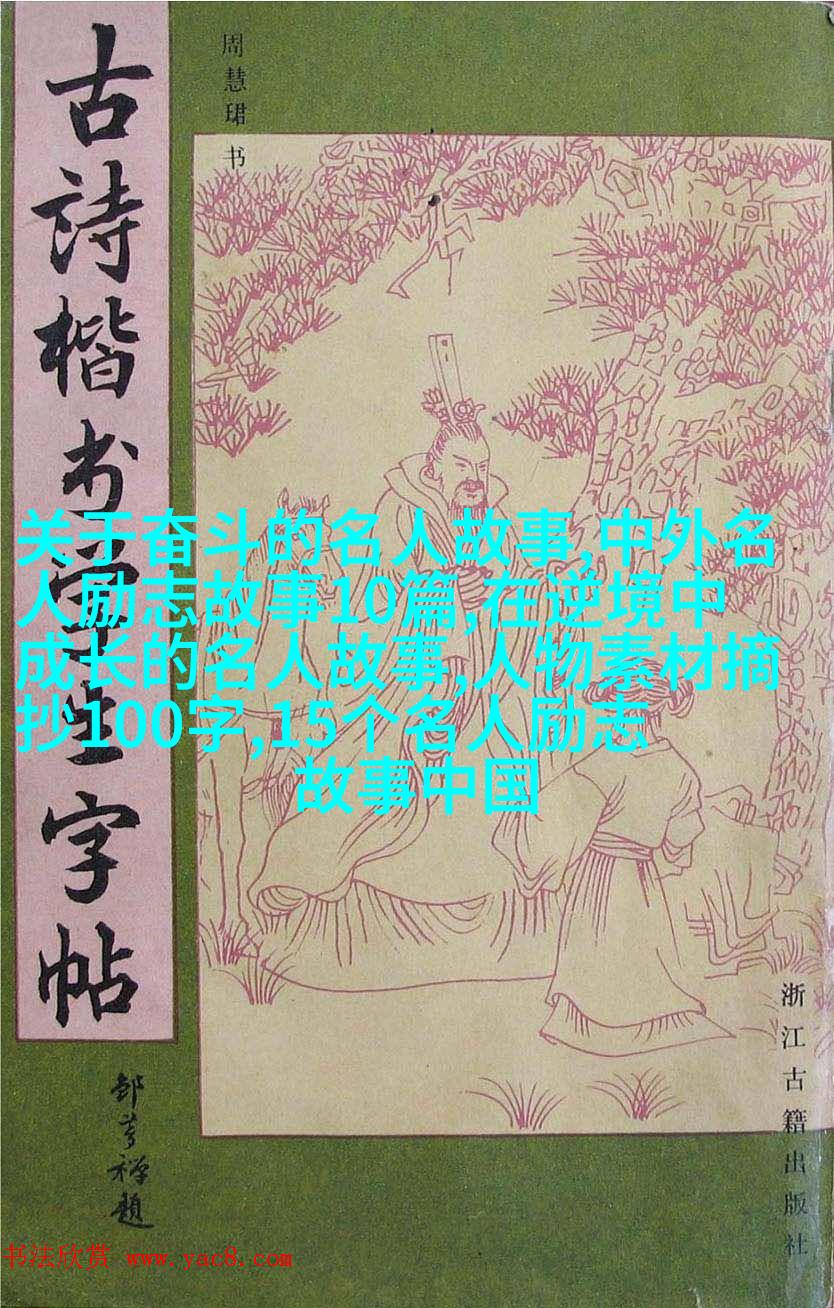 古詩楷书学生字帖
周慧珺书
关于奋斗的名人故事,中外名
人励志故事10篇,在逆境中
成长的名人故事,人物素材摘
抄100字,15个名人励志
故事中国
浙江古籍出版社
邹梦禅题
书法欣赏 www.yac8.com